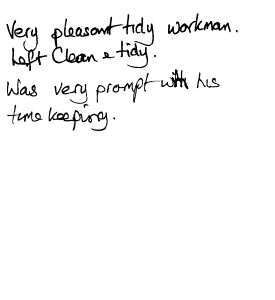 Very pleasant tidy workman.
Left Clean & tidy.
Was very prompt with his
time keeping.